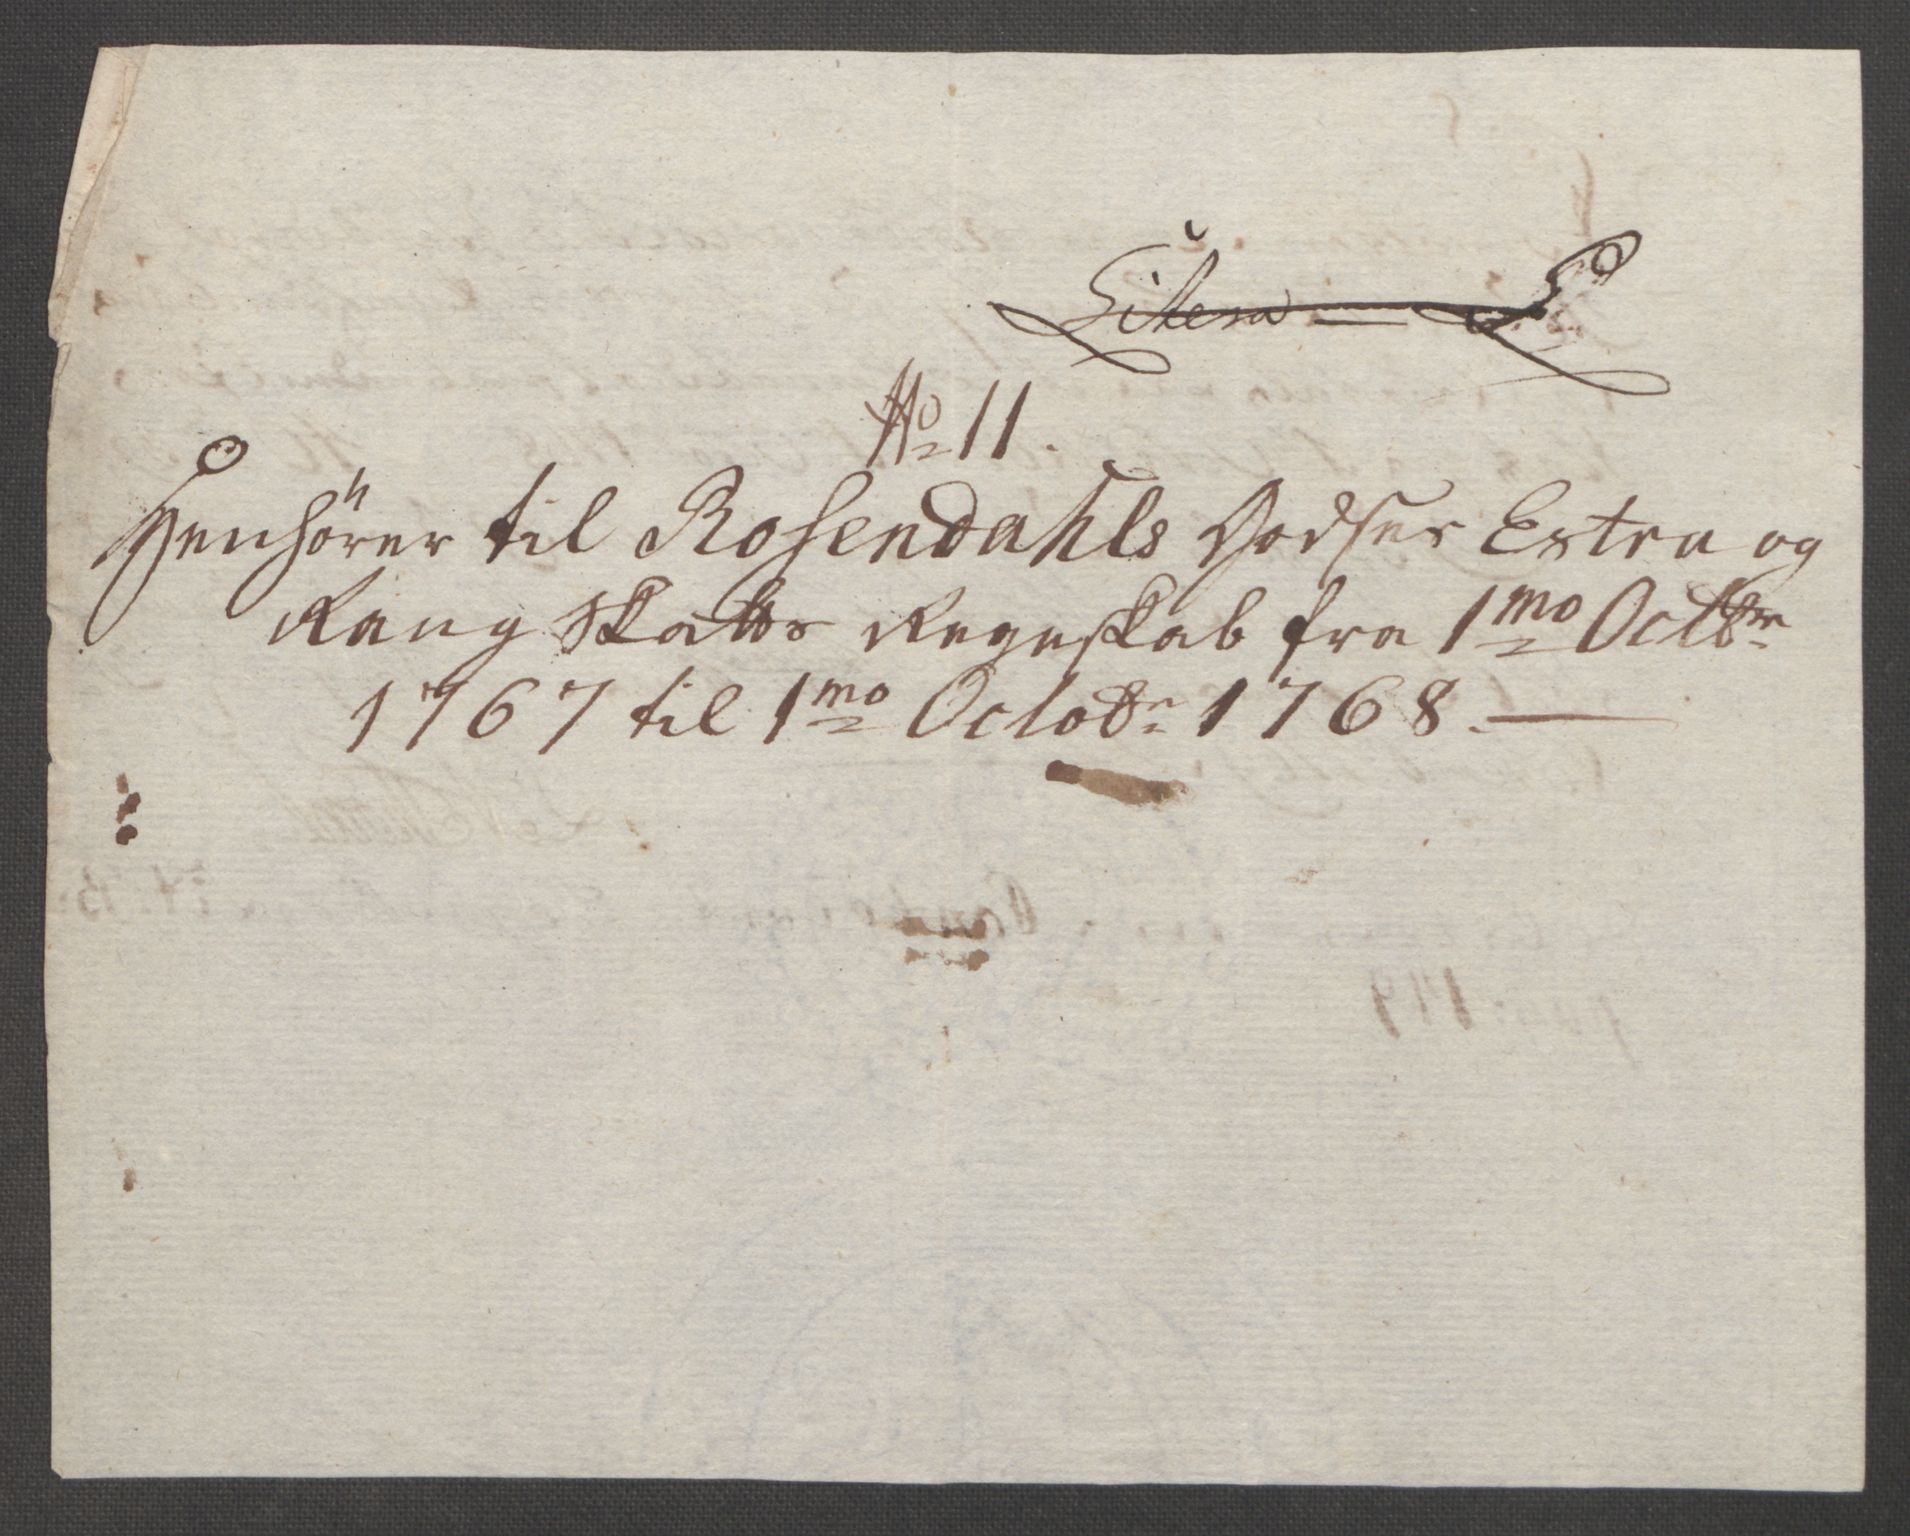 Litera L
No 11.
Henhörer til Rosendahls Godses Extra og
Rang Skatts Regnskab fra 1mo Octbr
1767 til 1mo Octobr 1768.